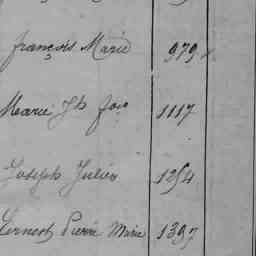 françois Marie 979
Marie Jh fois 1117
Joseph Julien 1254
Ernest Pierre Marie 1397